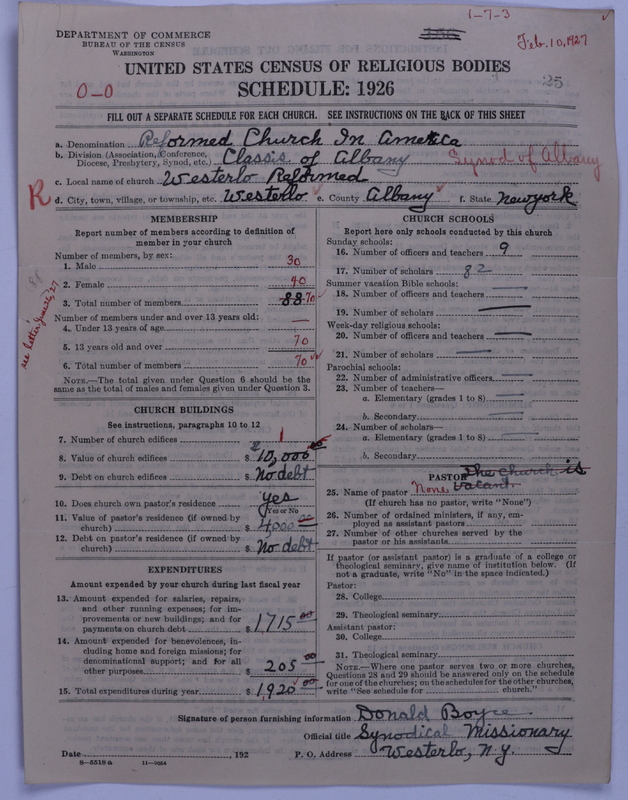 1-7-3
DEPARTMENT OF COMMERCE
BUREAU OF THE CENSUS
WASHINGTON
Feb. 10, 1927
UNITED STATES CENSUS OF RELIGIOUS BODIES
0-0
SCHEDULE: 1926
25
FILL OUT A SEPARATE SCHEDULE FOR EACH CHURCH. SEE INSTRUCTIONS ON THE BACK OF THIS SHEET
a. Denomination Reformed Church In America
b. Division (Association, Conference, Diocese, Presbytery, Synod, etc.) Classis of Albany Synod of Albany
c. Local name of church Westerlo Reformed
R
d. City, town, village, or township, etc. Westerlo e. County Albany f. State New York
MEMBERSHIP
Report number of members according to definition of
member in your church
Number of members, by sex:
1. Male 30
2. Female 40
3. Total number of members 88 70
Number of members under and over 13 years old:
4. Under 13 years of age —
5. 13 years old and over 70
6. Total number of members 70
NOTE.—The total given under Question 6 should be the
same as the total of males and females given under Question 3.
88
see letter '27
CHURCH BUILDINGS
See instructions, paragraphs 10 to 12
7. Number of church edifices 1
8. Value of church edifices $ 10,000 00
9. Debt on church edifices $ No debt
10. Does church own pastor's residence yes
Yes or No
11. Value of pastor's residence (if owned by
church) $ 4000 00
12. Debt on pastor's residence (if owned by
church) $ No debt
EXPENDITURES
Amount expended by your church during last fiscal year
13. Amount expended for salaries, repairs,
and other running expenses; for im-
provements or new buildings; and for
payments on church debt $ 1715 00
14. Amount expended for benevolences, in-
cluding home and foreign missions; for
denominational support; and for all
other purposes $ 205 00
15. Total expenditures during year $ 1920 00
CHURCH SCHOOLS
Report here only schools conducted by this church
Sunday schools:
16. Number of officers and teachers 9
17. Number of scholars 82
Summer vacation Bible schools:
18. Number of officers and teachers —
19. Number of scholars —
Week-day religious schools:
20. Number of officers and teachers —
21. Number of scholars —
Parochial schools:
22. Number of administrative officers —
23. Number of teachers—
a. Elementary (grades 1 to 8) —
b. Secondary —
24. Number of scholars—
a. Elementary (grades 1 to 8) —
b. Secondary
PASTOR The Church is
25. Name of pastor None Vacant
(If church has no pastor, write "None")
26. Number of ordained ministers, if any, em-
ployed as assistant pastors
27. Number of other churches served by the
pastor or his assistants
If pastor (or assistant pastor) is a graduate of a college or
theological seminary, give name of institution below. (If
not a graduate, write "No" in the space indicated.)
Pastor:
28. College
29. Theological seminary
Assistant pastor:
30. College
31. Theological seminary
NOTE.—Where one pastor serves two or more churches,
Questions 28 and 29 should be answered only on the schedule
for one of the churches; on the schedules for the other churches,
write "See schedule for church."
Signature of person furnishing information Donald Boyce
Official title Synodical Missionary
Date , 192 P. O. Address Westerlo, N.Y.
8—5518a 11—9054